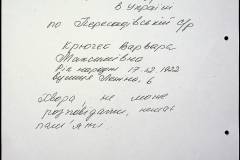 в Україні
по Пересадівській с/р
Крючек Варвара
Максимівна
Рік народж 17.12.1922
вулиця Леніна, 6
Хвора не може
розповідати, немає
пам'яти